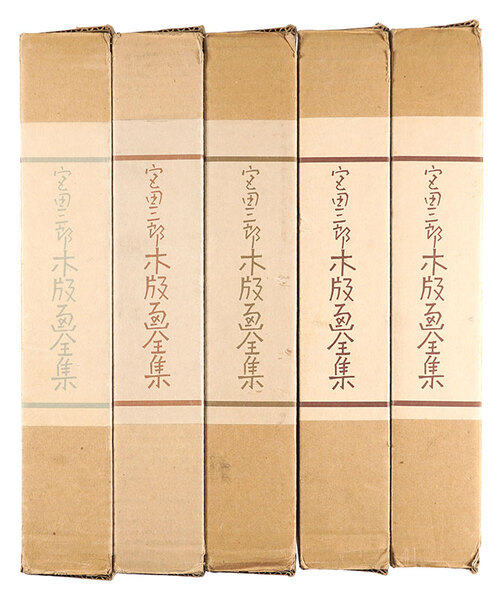 宮田三郎木版画全集
宮田三郎木版画全集
宮田三郎木版画全集
宮田三郎木版画全集
宮田三郎木版画全集